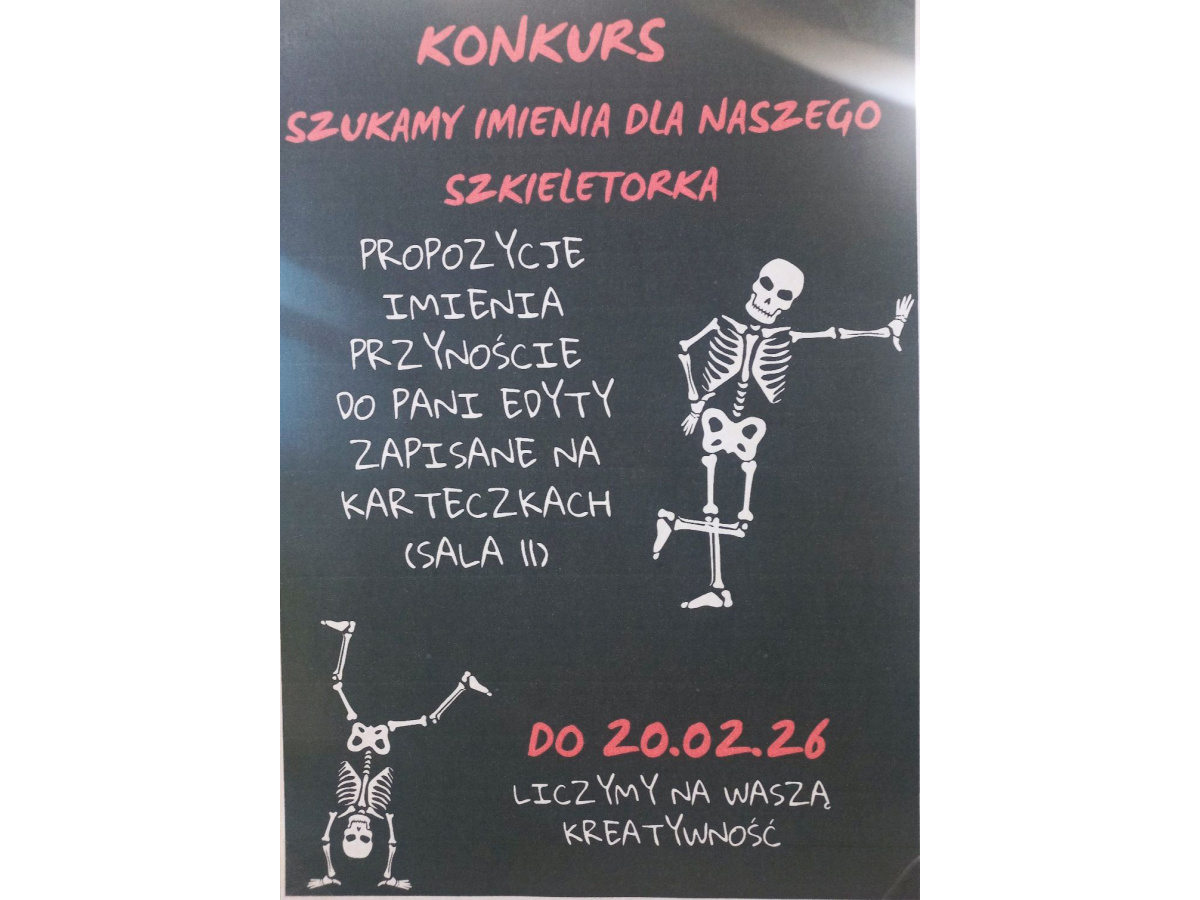 KONKURS
SZUKAMY IMIENIA DLA NASZEGO
SZKIELETORKA
PROPOZYCJE
IMIENIA
PRZYNOŚCIE
DO PANI EDYTY
ZAPISANE NA
KARTECZKACH
(SALA 11)
DO 20.02.26
LICZYMY NA WASZĄ
KREATYWNOŚĆ